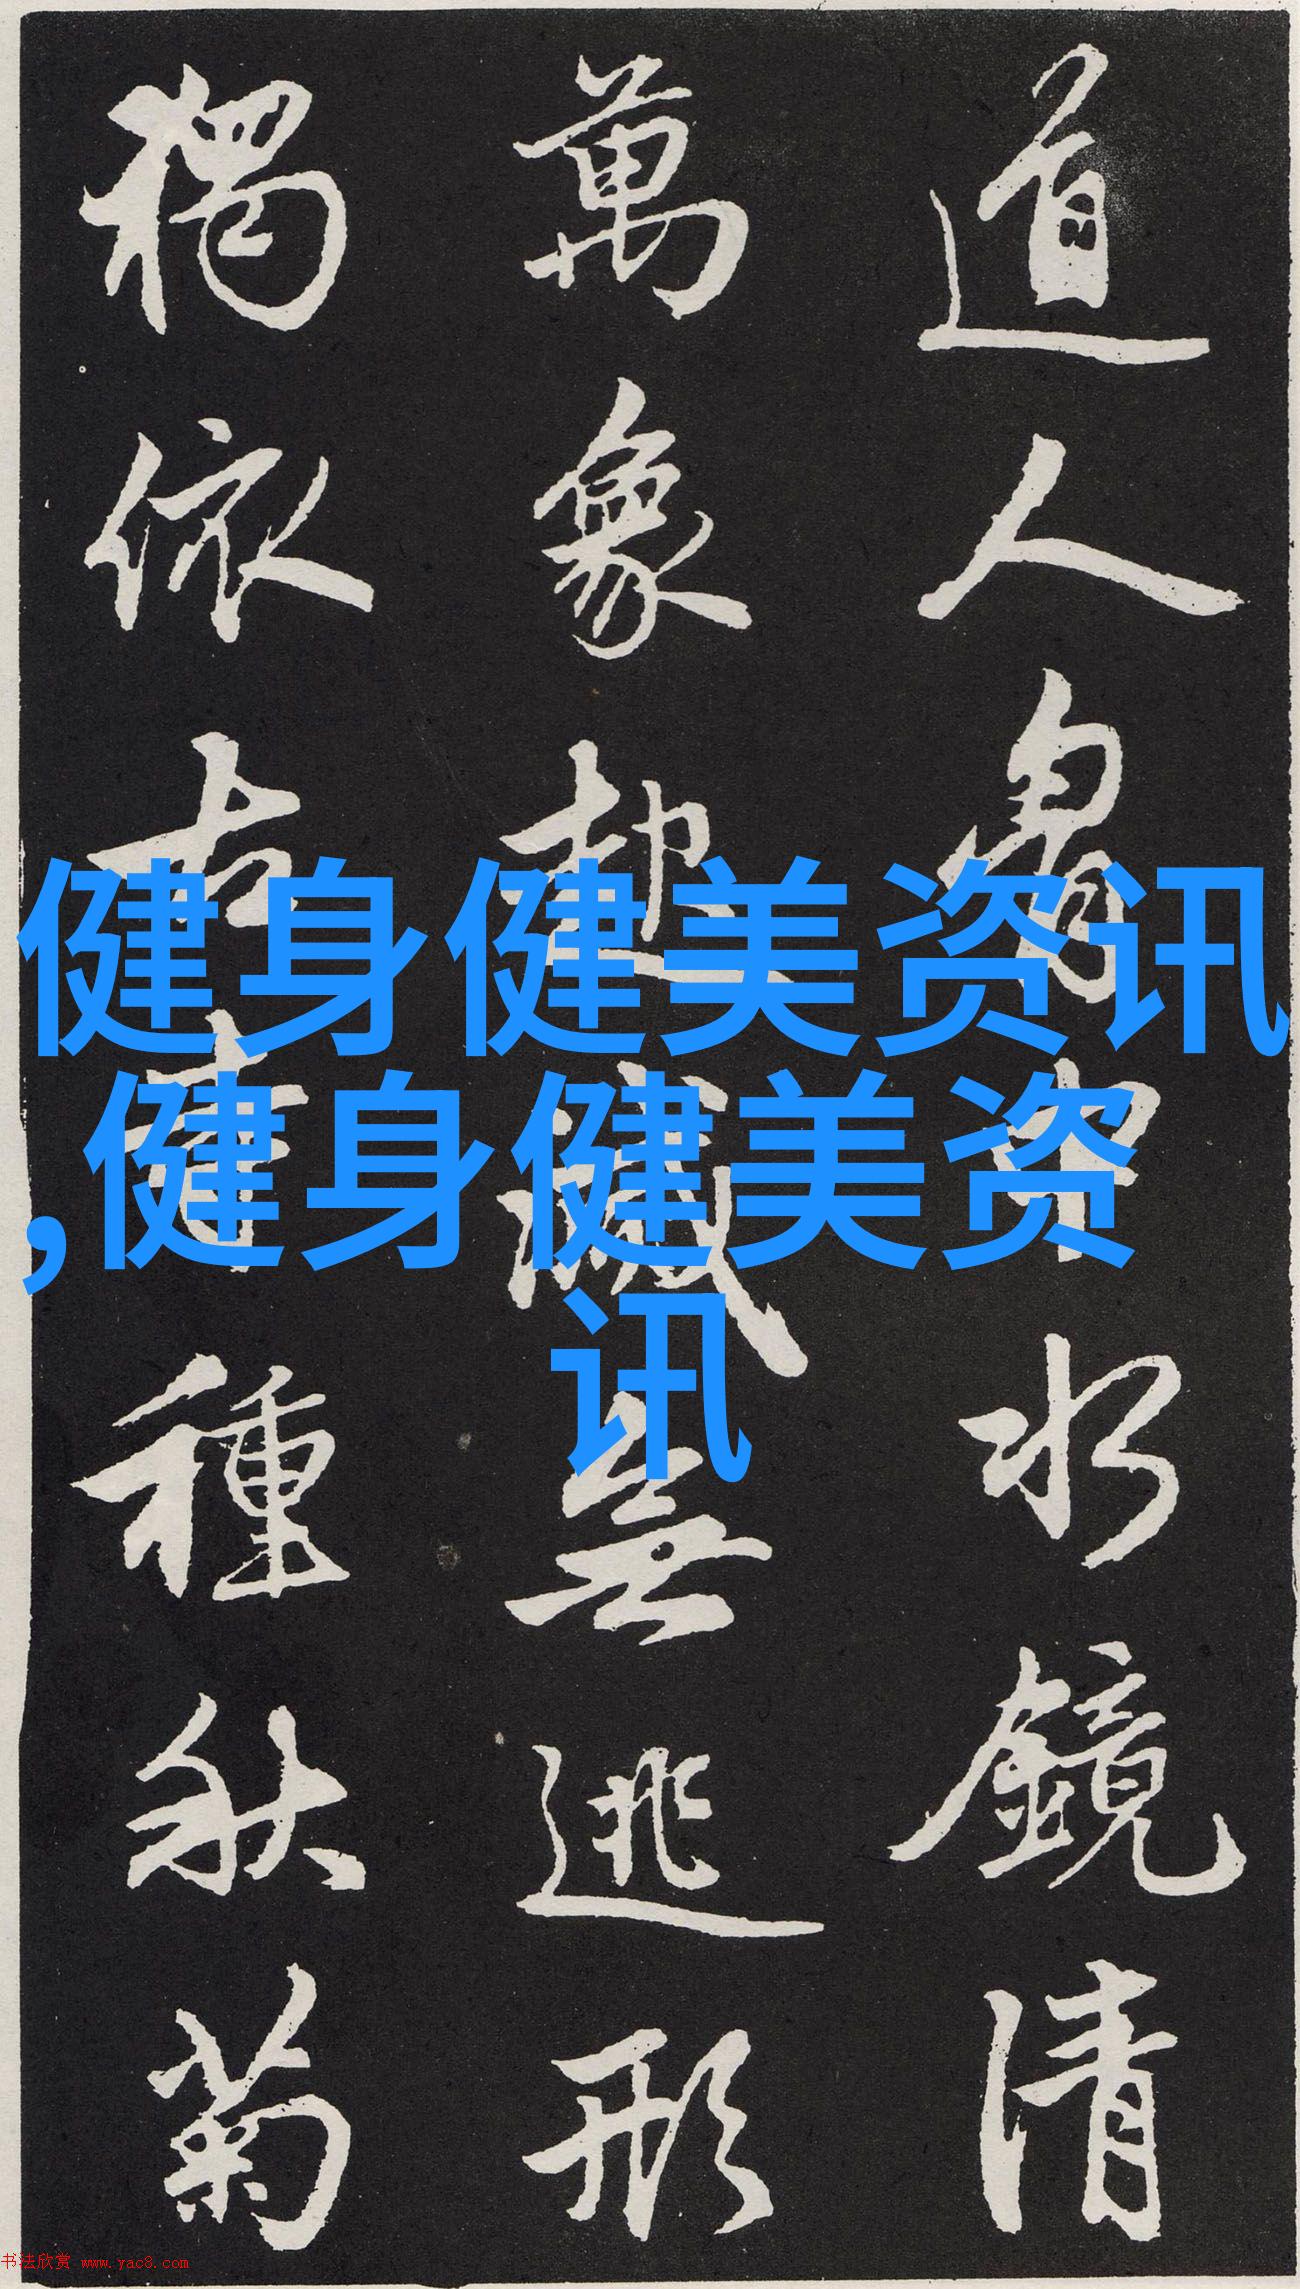 道人胷中水鏡清
萬象起滅無逃形
獨依古寺種秋菊
健身健美资讯
,健身健美资
讯
书法欣赏 www.yac8.com